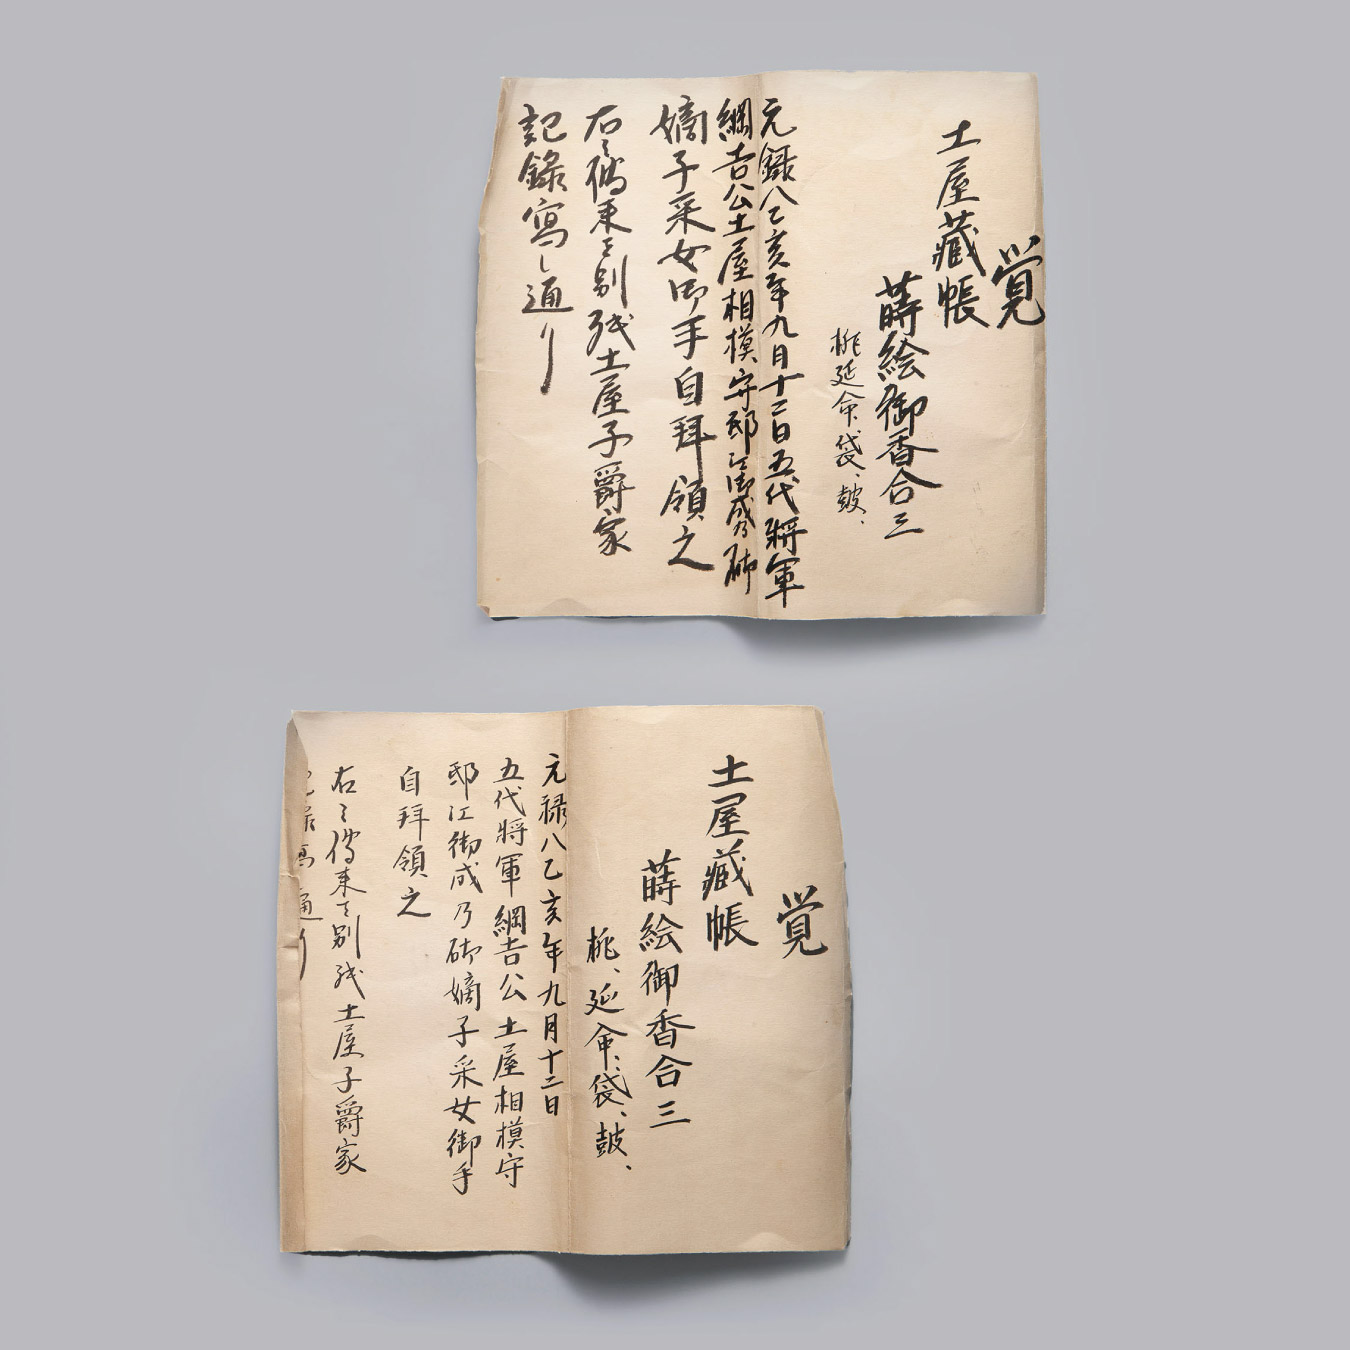 覚
土屋藏帳
蒔絵御香合三
桃延命、袋、鼓、
元録八乙亥年九月十二日五代将軍
綱吉公土屋相模守邸江御成乃砌
嫡子采女御手自拜領之
右之傳来を別残土屋子爵家
記録寫し通り
覚
土屋藏帳
蒔絵御香合三
桃、延命、袋、鼓、
元禄八乙亥年九月十二日
五代将軍綱吉公土屋相模守
邸江御成乃砌嫡子采女御手
自拜領之
右之傳来を別残土屋子爵家
寫 通り